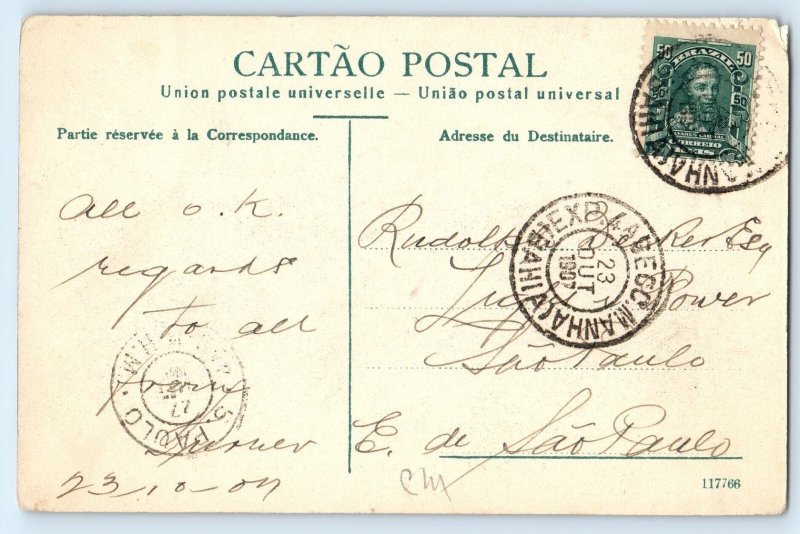 CARTÃO POSTAL
Union postale universelle — União postal universal
Partie réservée à la Correspondance.
Adresse du Destinataire.
BRAZIL
50 50
50 50
CORREIO
MANHA (BAHIA)
All o. k.
regards
to all
from
Turner
23-10-07
Rudolf Esq
Light Power
São Paulo
E. de São Paulo
(BAHIA) EXP. MANHA
23
OUT
1907
S. PAULO
27
CM
117766